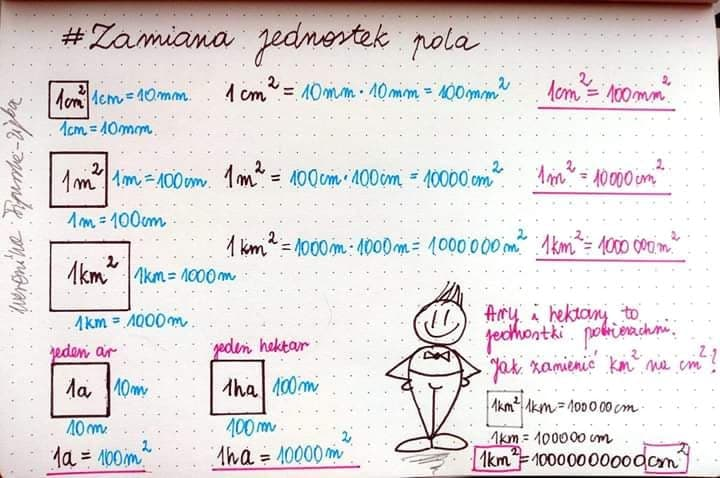 #Zamiana jednostek pola
1cm² 1cm = 10mm 1cm² = 10mm · 10mm = 100mm² 1cm² = 100mm²
1cm = 10mm
1m² 1m = 100cm 1m² = 100cm · 100cm = 10000cm² 1m² = 10000cm²
1m = 100cm
1km² = 1000m · 1000m = 1000000m² 1km² = 1000000m²
1km² 1km = 1000m
1km = 1000m
jeden ar jeden hektar
1a 10m 1ha 100m
10m 100m
1a = 100m² 1ha = 10000m²
Ary i hektary to
jednostki powierzchni.
Jak zamienić km² na cm²?
1km² 1km = 100000cm
1km = 100000cm
1km² = 10000000000cm²
weronika